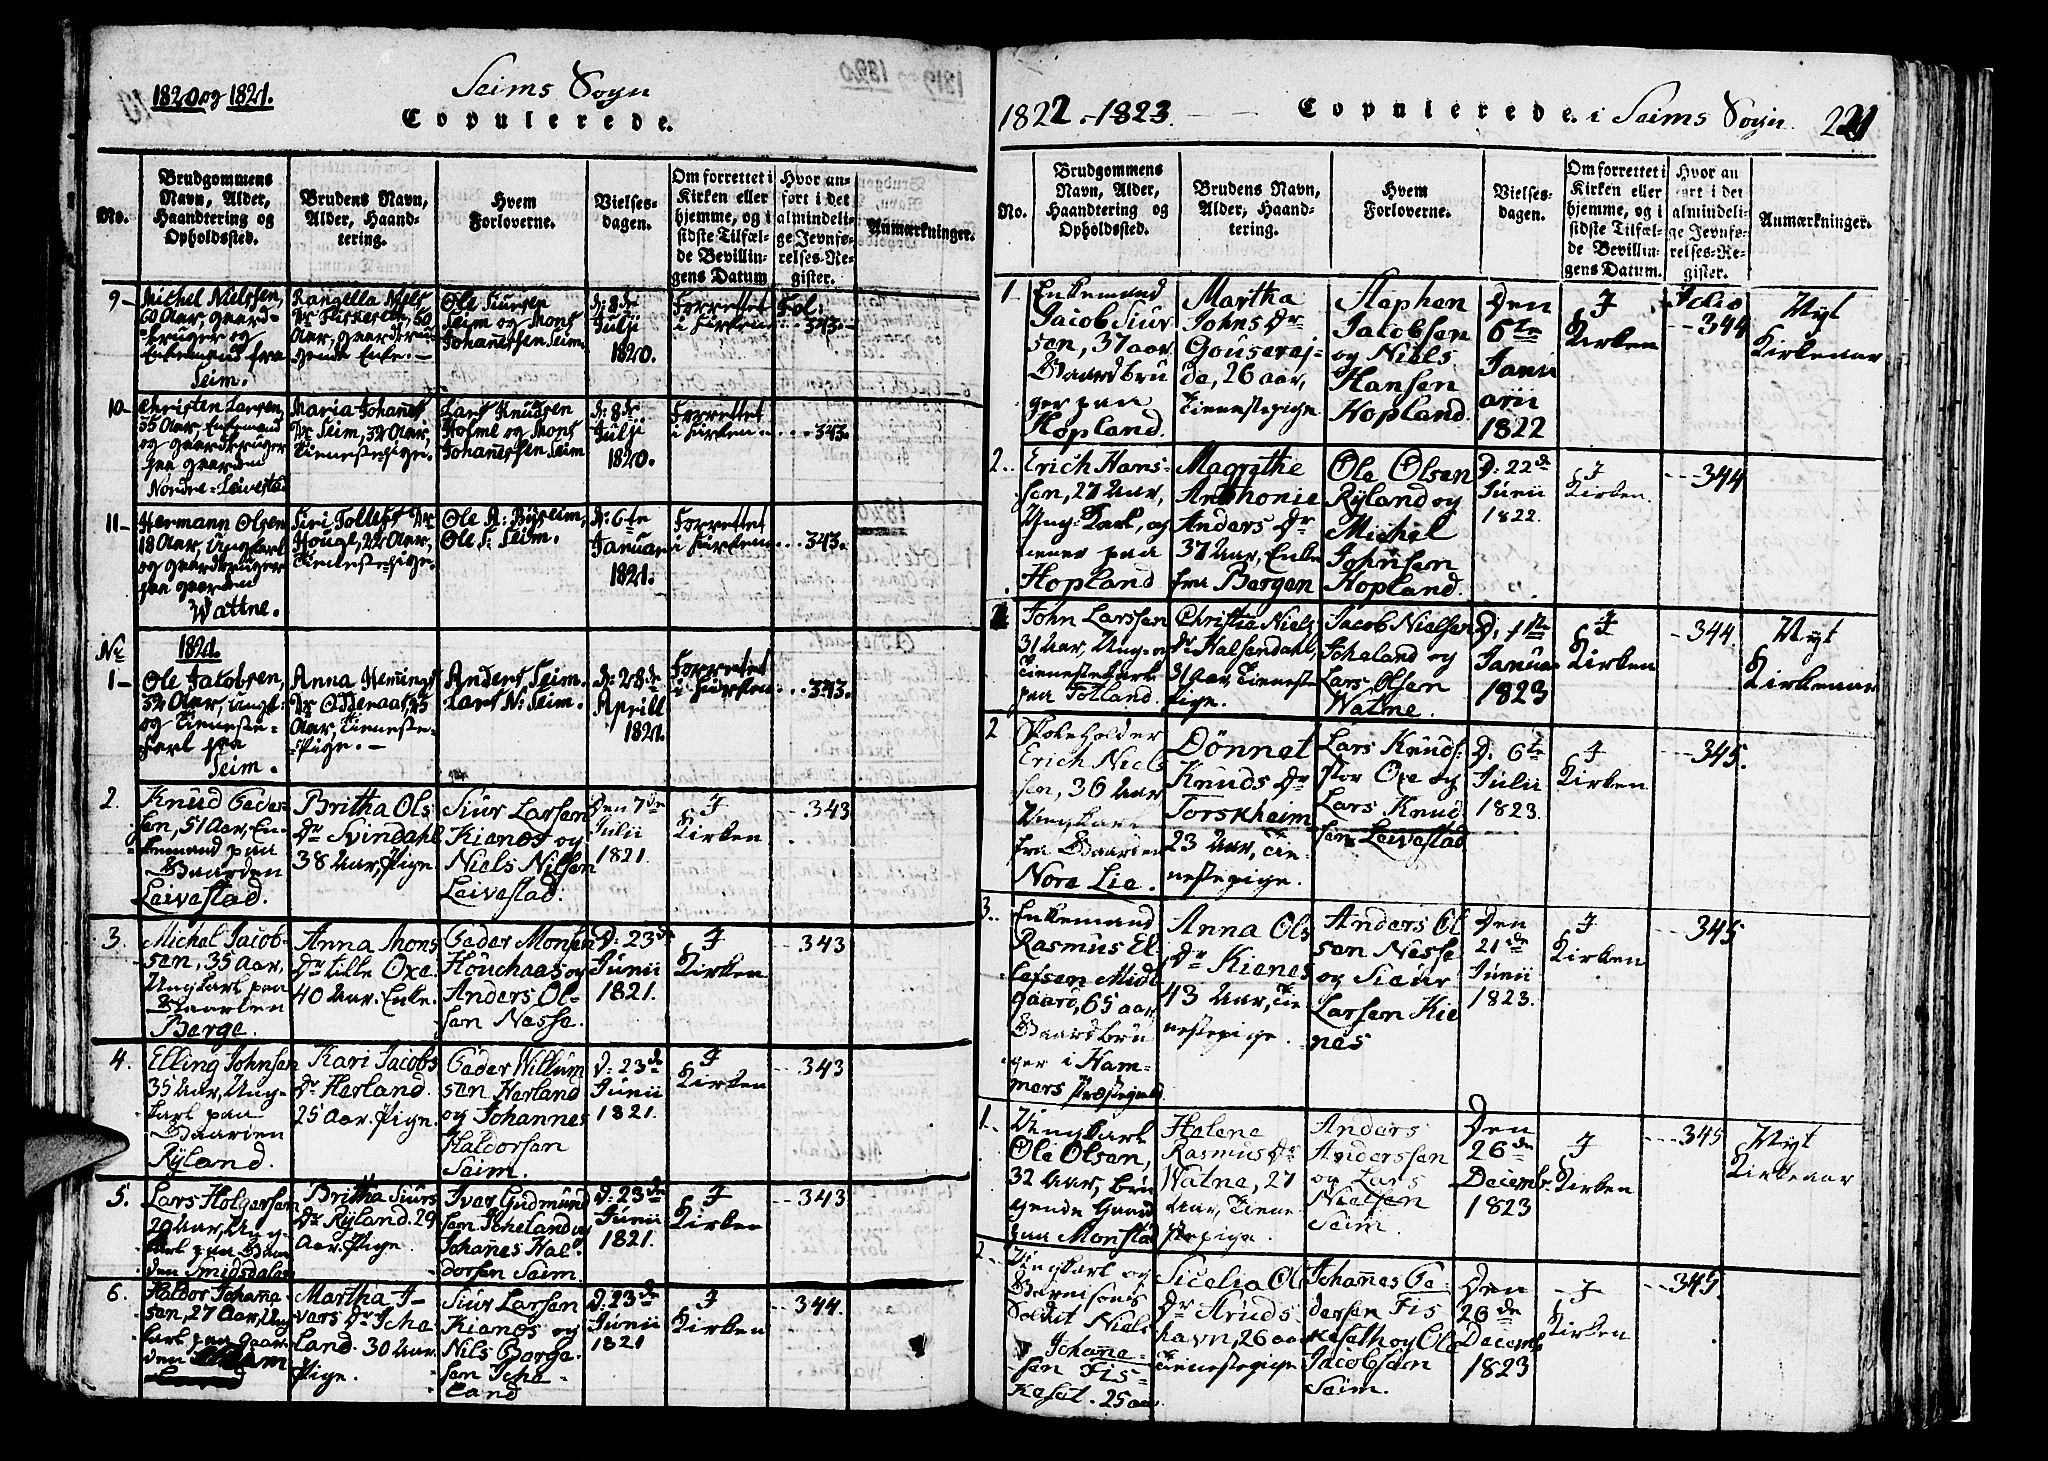 1820 og 1821.
Seims Sogn
Copulerede.
No.
Brudgommens
Navn, Alder,
Haandtering og
Opholdssted.
Brudens Navn,
Alder, Haand-
tering.
Hvem
Forloverne.
Vielses-
dagen.
Om forrettet i
Kirken eller
hjemme, og i
sidste Tilfæl-
de Bevillin-
gens Datum
Hvor an-
ført i det
almindeli-
ge Jevnfø-
relses-Re-
gister.
Anmærkninger.
9-
Michel Nielssen,
60 Aar, gaard-
bruger og
Enkemand fra
Seim.
Rangella Niels
Dr Fiskeseth, 60
Aar, gaardbru-
gende Enke.-
Ole Siursen
Seim og Mons
Johanessen Seim.
d: 8de
Julji
1820.
Forrettet
i Kirken
Fol:
343.
10-
Christen Larsen,
35 Aar, Enkemand
og gaardbruger
paa gaarden
Nordre-Leivestad
Maria Johanes
Dr Seim, 32 Aar,
Tienestepige.
Lars Knudsen
Holme og Mons
Johanessen Seim
d: 8de
Julji
1820.
Forrettet
i Kirken
343.
11-
Hermann Olsen
18 Aar, Ungkarl
og gaardbruger
paa gaarden
Wattne.
Siri Tollefs Dr
Houge, 22 Aar,
Tienestepige.
Ole A: Byseim,
Ole S: Seim.
d: 6te
Januar
1821.
Forrettet
i Kirken
343.
No
1821.
1-
Ole Jacobsen,
32 Aar, ungk-
og Tieneste-
karl paa
Seim.
Anna Hemings
Dr Odderaas, 23
Aar, Tieneste-
Pige.-
Anders Seim.
Lars N: Seim.
d: 28de
Aprill
1821.
Forrettet
i Kirken
343.
2.
Knud Peder-
sen, 51 Aar, En-
kemand paa
Gaarden
Leivestad.
Britha Ols
Dr Svindahl
38 Aar, Pige
Siur Larsen
Kianes og
Niels Nilsen
Leivestad.
Den 7de
Julii
1821.
J
Kirken
343
3.
Michel Jacob-
sen, 35 Aar,
Ungkarl paa
Gaarden
Berge.
Anna Mons
Dr lille Oxe.
40 Aar. Enke.
Peder Monsen
Houchaas og
Anders Ol-
sen Nesse.
D: 23de
Junii
1821.
J
Kirken
343
4.
Elling Johnsen
35 Aar, Ung-
karl paa
Gaarden
Ryland.
Kari Jacobs
Dr Herland.
25 Aar. Pige.
Peder Willum
sen Herland
og Johannes
Haldorsen
Seim.
D: 23de
Junii
1821.
J
Kirken
343
5.
Lars Holgersen
29 Aar, Ung-
karl paa Gaar
den Smidsdalen
Britha Siurs
Dr Ryland. 29
Aar. Pige.
Ivar Gudmund
sen Icheland og
Johanes Hal-
dorsen Seim.
D: 23de
Junii
1821.
J
Kirken
343
6.
Haldor Johane-
sen, 27 Aar, Ung
karl paa Gaar-
den
Martha I-
vars Dr Iche
land. 30 Aar
Pige.
Siur Larsen
Kianes og
Nils Borge-
sen Iche-
land
D: 23de
Junii
1821
J
Kirken
344.
1822-1823.
Copulerede. i Seims Sogn.
221
No.
Brudgommens
Navn, Alder,
Haandtering og
Opholdssted.
Brudens Navn,
Alder, Haand-
tering.
Hvem
Forloverne.
Vielses-
dagen.
Om forrettet i
Kirken eller
hjemme, og i
sidste Tilfæl-
de Bevillin-
gens Datum.
Hvor an
ført i det
almindeli-
ge Jevnfø-
relses-Re-
gister.
Anmærkninger.
1
Enkemand
Jacob Siur
sen, 37 aar
Gaardbru
ger paa
Hopland.
Martha
Johns Dr
Gouseraj-
de, 26 aar,
Tienestepige
Stephen
Jacobsen
og Niels
Hansen
Hopland.
Den
6te
Janu
arii
1822
J
Kirken
Folio
344
Nyt
Kirkeaar
2.
Erich Hans-
sen, 27 Aar,
Ung-Karl, og
tiener paa
Hopland
Magrethe
Anthonie
Anders Dr
37 Aar, Enke
fra Bergen
Ole Olsen
Ryland og
Michel
Johnsen
Hopland.
D: 22de
Junii
1822.
J
Kirken
344
1
John Larssen
31 Aar, Ung- og
Tienestekarl
paa Fotland.
Christie Niels
Dr Halsendahl,
31 Aar, Tieneste
pige.
Jacob Nielsen
Icheland og
Lars Olsen
Watne.
D: 1ste
Janua
1823
J
Kirken
344.
Nyt
Kirkeaar
2
Skoleholder
Erich Niels
sen, 36 Aar
Ungkarl
fra Gaarden
Nore Lie.
Dönnet
Knuds Dr
Torskheim
23 Aar, Tie-
nestepige.
Lars Knuds:
stor Oxe og
Lars Knud
sen Leivestad
D. 6te
Julii
1823.
J
Kirken
345.
3.
Enkemand
Rasmus El
lefsen Mid
gaard, 65 aar,
Gaardbru
ger i Ham-
mers Præstegield
Anna Ols
Dr Kianes
43 Aar, Tie-
nestepige.
Anders Ol
sen Nesse
og Sieur
Larsen Kie
nes
Den
21de
Junii
1823.
J
Kirken
345
1.
Ungkarl
Ole Olsen,
32 Aar, bru
gende Gaard
paa Monstad
Helene
Rasmus Dr
Watne, 27
Aar, Tiene
stepige.
Anders
Anderssen
og Lars
Nielsen
Seim.
Den
26de
Decemb.
1823
J
Kirken
345
Nyt
Kirkeaar
2.
Ungkarl og
Garnisons
Soldat Niels
Johane-
sen Fis-
keset. 25 aar
Sicelia Ol
Dr Struds
havn, 26 aar
Tienestepige
Johanes Pe-
dersen Fis
keseth og Ole
Jacobsen
Seim.
Den
26de
Decemb
1823
J
Kirken
345.